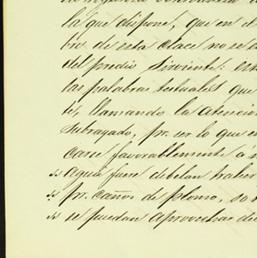 la que dispone, que en el
bre de esta clace no se
del predio sirviente.
las palabras testuales que
llamando la atencion
subrayado, pr. ser lo que
carse favorablemente á
agua fuese debian haber
pr. caños de plomo,
se puedan aprovechar de